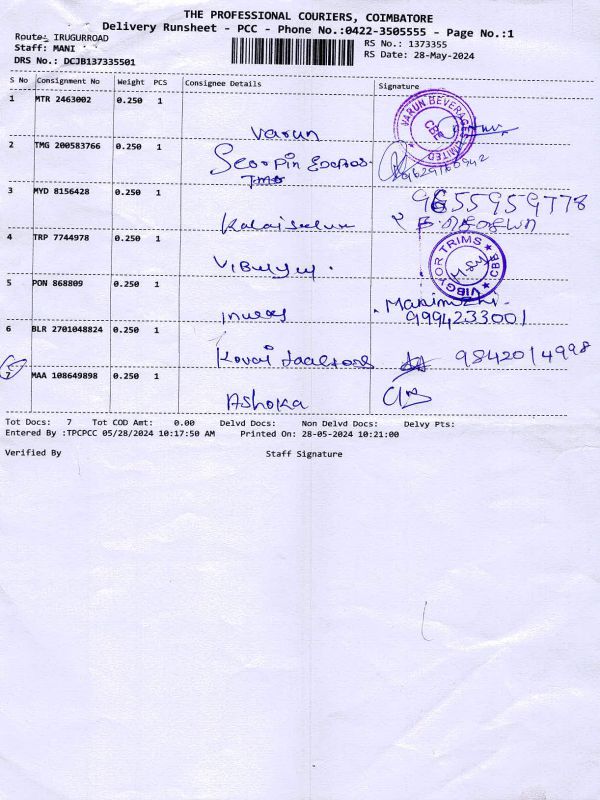 THE PROFESSIONAL COURIERS, COIMBATORE
Delivery Runsheet - PCC - Phone No.:0422-3505555 - Page No.:1
Route: IRUGURROAD
Staff: MANI
DRS No.: DCJB137335501
RS No.: 1373355
RS Date: 28-May-2024
S No Consignment No Weight PCS Consignee Details Signature
1 MTR 2463002 0.250 1 Varun
VARUN BEVERAGES LIMITED CBE
2 TMG 200583766 0.250 1
3 MYD 8156428 0.250 1 9655959778
4 TRP 7744978 0.250 1
VIBGYOR TRIMS CBE
5 PON 868809 0.250 1 Manimozhi
9994233001
6 BLR 2701048824 0.250 1 Kovai 9842014998
7 MAA 108649898 0.250 1 Ashoka
Tot Docs: 7 Tot COD Amt: 0.00 Delvd Docs: Non Delvd Docs: Delvy Pts:
Entered By :TPCPCC 05/28/2024 10:17:50 AM Printed On: 28-05-2024 10:21:00
Verified By Staff Signature